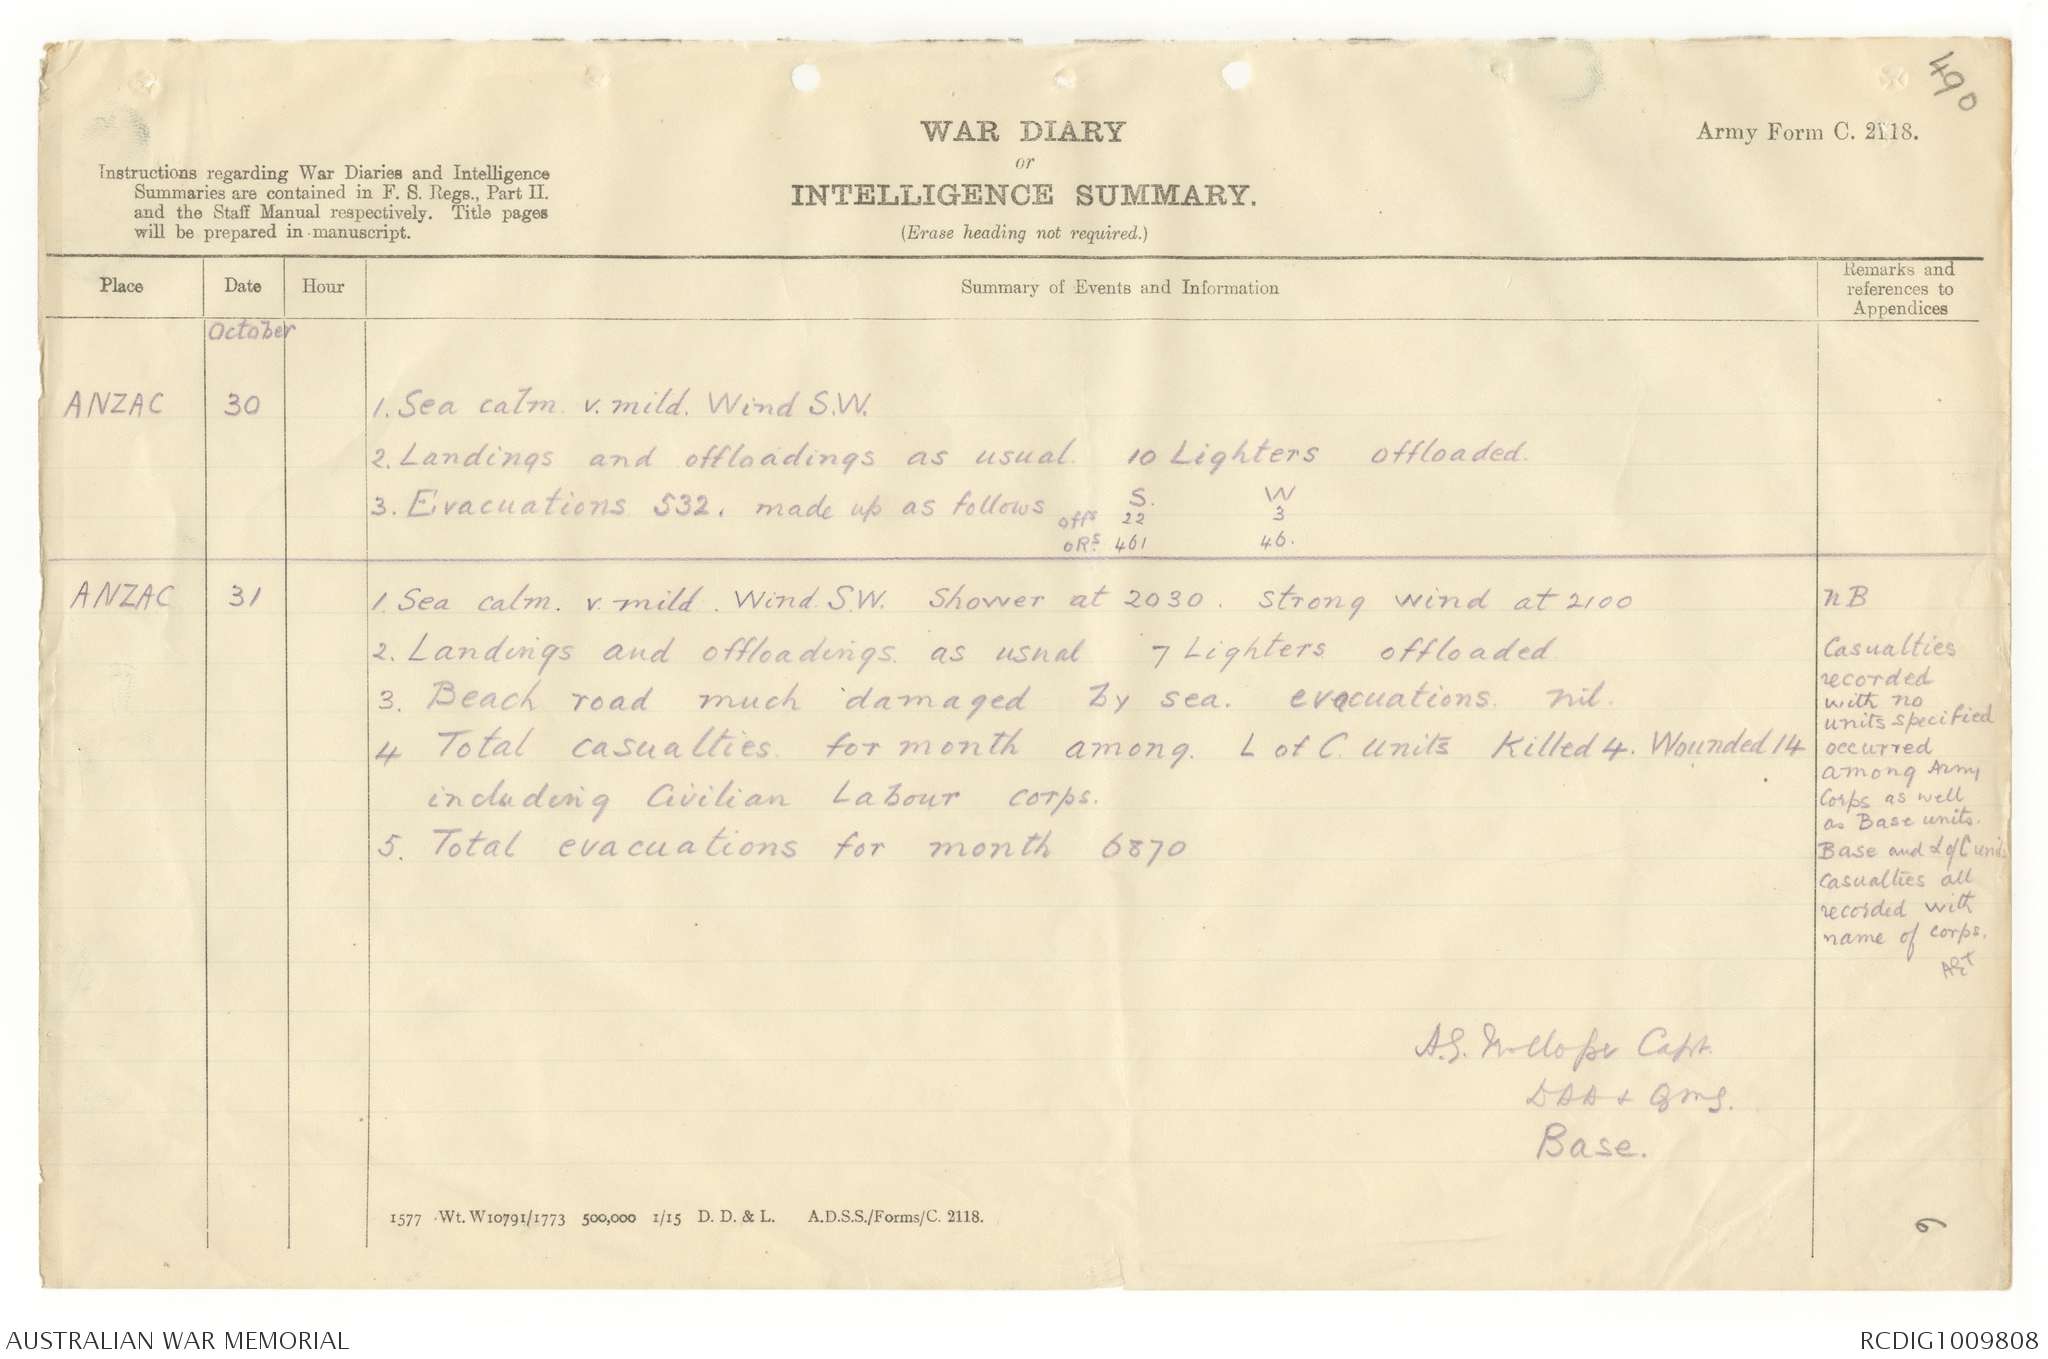 490
WAR DIARY
or
INTELLIGENCE SUMMARY.
(Erase heading not required.)
Army Form C. 2118.
Instructions regarding War Diaries and Intelligence
Summaries are contained in F. S. Regs., Part II.
and the Staff Manual respectively. Title pages
will be prepared in manuscript.
Place Date Hour Summary of Events and Information Remarks and
references to
Appendices
October
ANZAC 30 1. Sea calm v. mild. Wind S.W.
2. Landings and offloadings as usual. 10 Lighters offloaded.
3. Evacuations 532. made up as follows S. W
Offs 22 3
ORs 461 46.
ANZAC 31 1. Sea calm. v. mild. Wind S.W. Shower at 2030. Strong wind at 2100
2. Landings and offloadings as usual 7 Lighters offloaded
3. Beach road much damaged by sea. evacuations nil.
4 Total casualties for month among L of C. units Killed 4. Wounded 14
including Civilian Labour corps.
5. Total evacuations for month 6870
nB
Casualties
recorded
with no
units specified
occurred
among Army
Corps as well
as Base units.
Base and L of C units
Casualties all
recorded with
name of corps.
A.G. Capt.
DAA & QMG.
Base.
1577 Wt. W10791/1773 500,000 1/15 D. D. & L. A.D.S.S./Forms/C. 2118.
6
AUSTRALIAN WAR MEMORIAL
RCDIG1009808